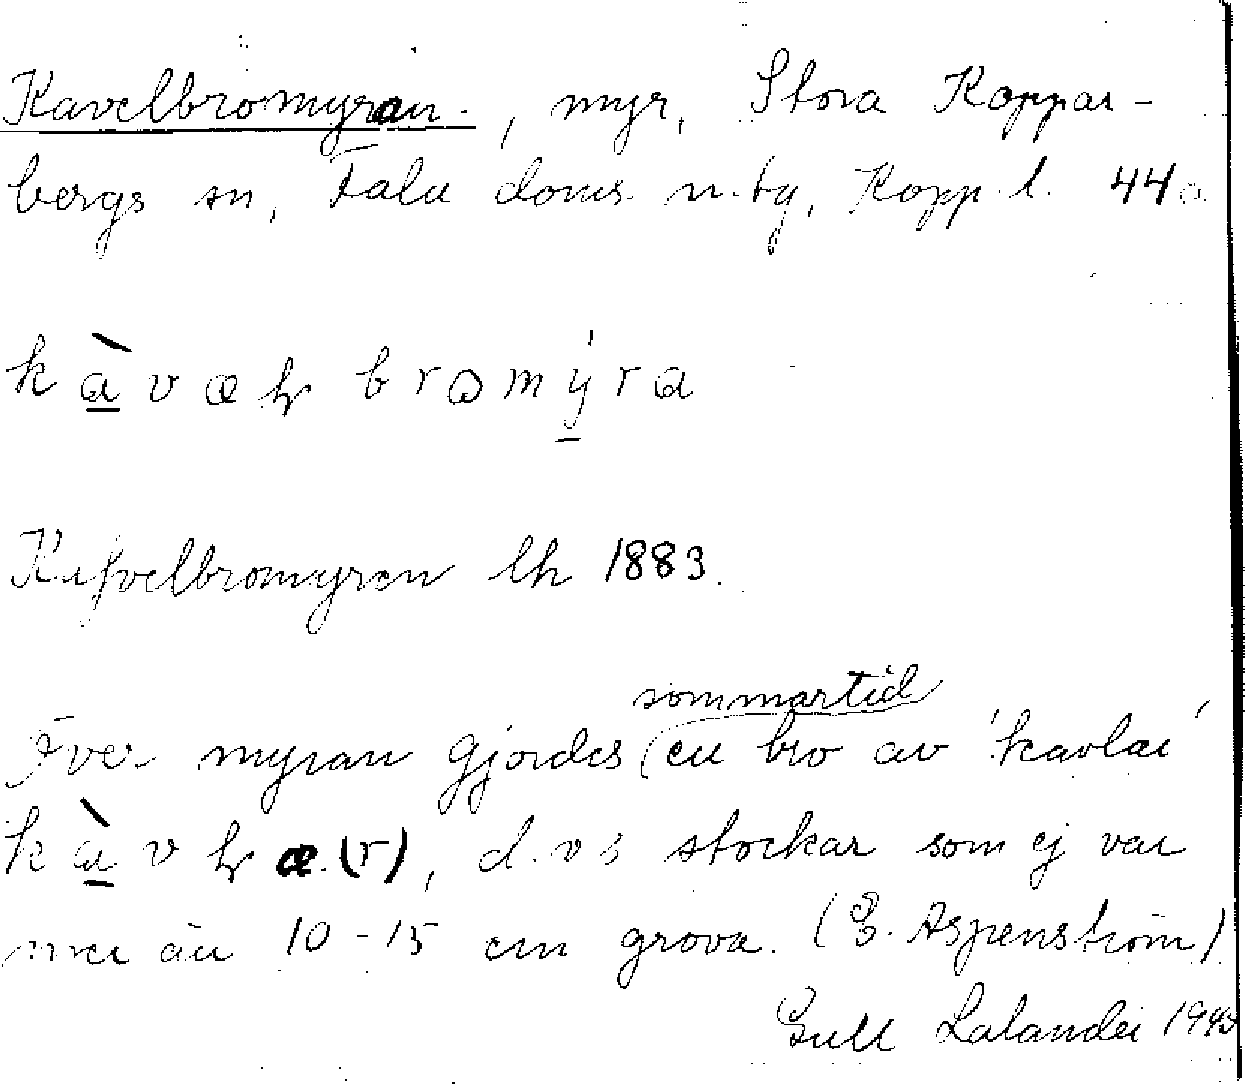 Kavelbromyran, myr, Stora Koppar-
bergs sn, Falu doms. n.tg, Kopp. l. 44a
kàvæl bromýra
Kafvelbromyren lh 1883.
sommartid
Över myran gjordes (en bro av 'kavlar'
kàvlæ(r), d.v.s stockar som ej var
mer än 10-15 cm grova. (G. Aspenström)
Gull Lalander